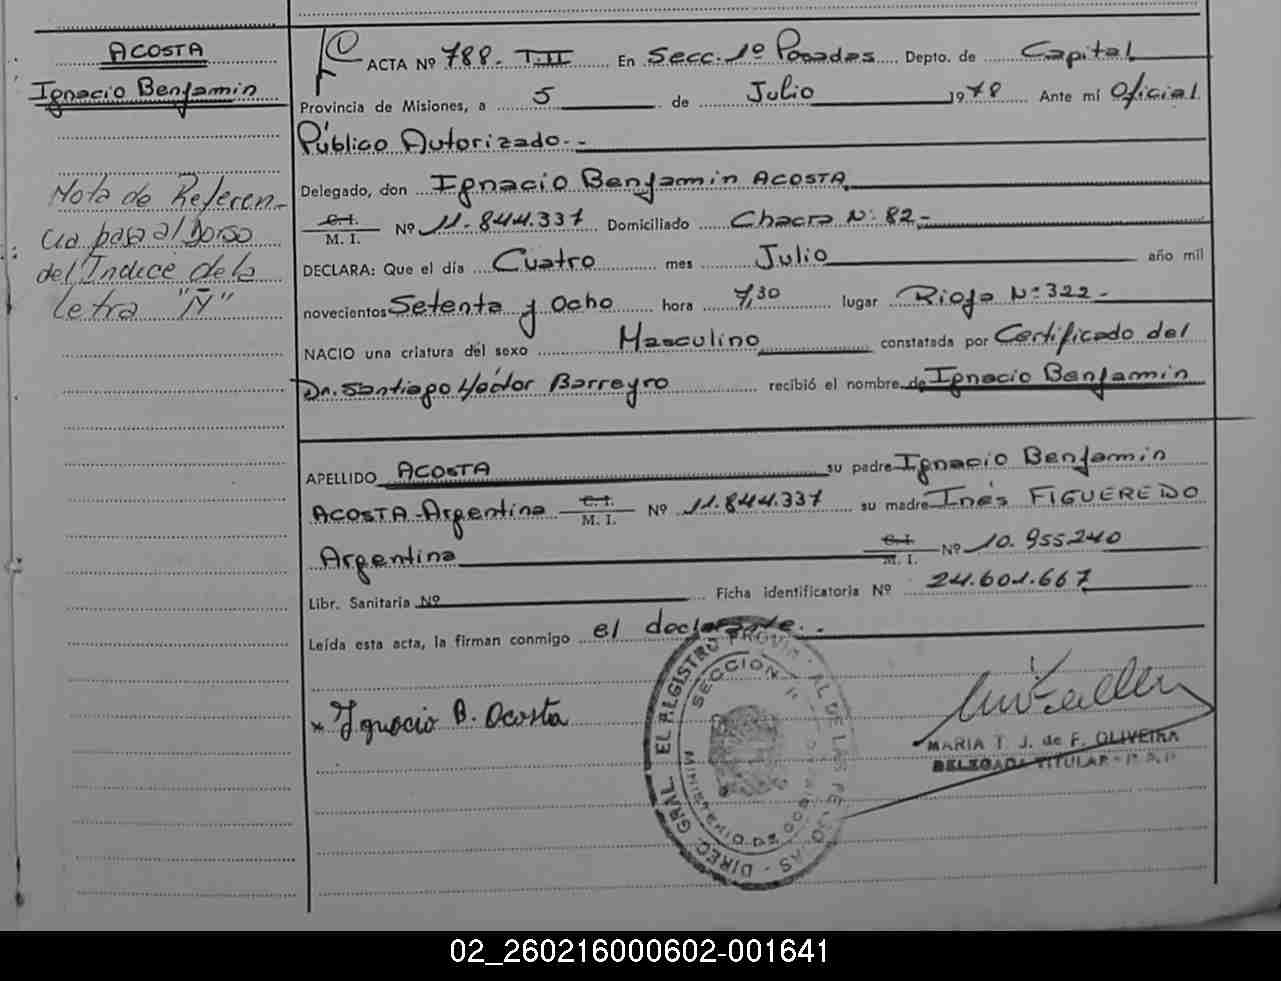 ACOSTA
Ignacio Benjamin
Nota de Referen-
cia pasa al Dorso
del Indice de la
letra "Ñ"
ACTA Nº 788. T.II En Secc. 1º Posadas Depto. de Capital
Provincia de Misiones, a 5 de Julio 1978 Ante mí Oficial
Público Autorizado.-
Delegado, don Ignacio Benjamin ACOSTA
C.I.
M. I. Nº 11.844.337 Domiciliado Chacra Nº 82-
DECLARA: Que el día Cuatro mes Julio año mil
novecientos Setenta y Ocho hora 7,30 lugar Rioja Nº 322-
NACIO una criatura del sexo Masculino constatada por Certificado del
Dr. Santiago Héctor Barreyro recibió el nombre de Ignacio Benjamin
APELLIDO ACOSTA su padre Ignacio Benjamin
ACOSTA Argentina C.I. M. I. Nº 11.844.337 su madre Inés FIGUEREDO
Argentina C.I. M. I. Nº 10.955240
Libr. Sanitaria Nº Ficha identificatoria Nº 24.601.667
Leída esta acta, la firman conmigo el declarante.
x Ignacio B. Acosta
DIREC. GRAL. EL REGISTRO PROVINCIAL DE LAS PERSONAS
SECCION 1ª
MARIA T. J. de F. OLIVEIRA
DELEGADA TITULAR - R.P.P.
02_260216000602-001641